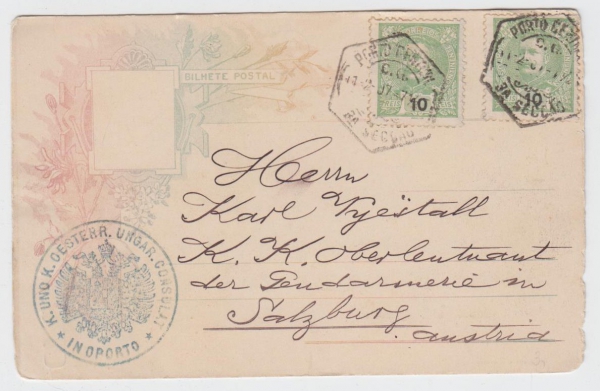 BILHETE POSTAL
10
10
PORTO CENTRAL
C.G.
3A SECCÃO
PORTO CENTRAL
C.G.
3A SECCÃO
Herrn
Karl
K. K. Oberlentnant
der Gendarmerie in
Salzburg
Austria
K. UND K. OESTERR. UNGAR. CONSULAT
* IN OPORTO *